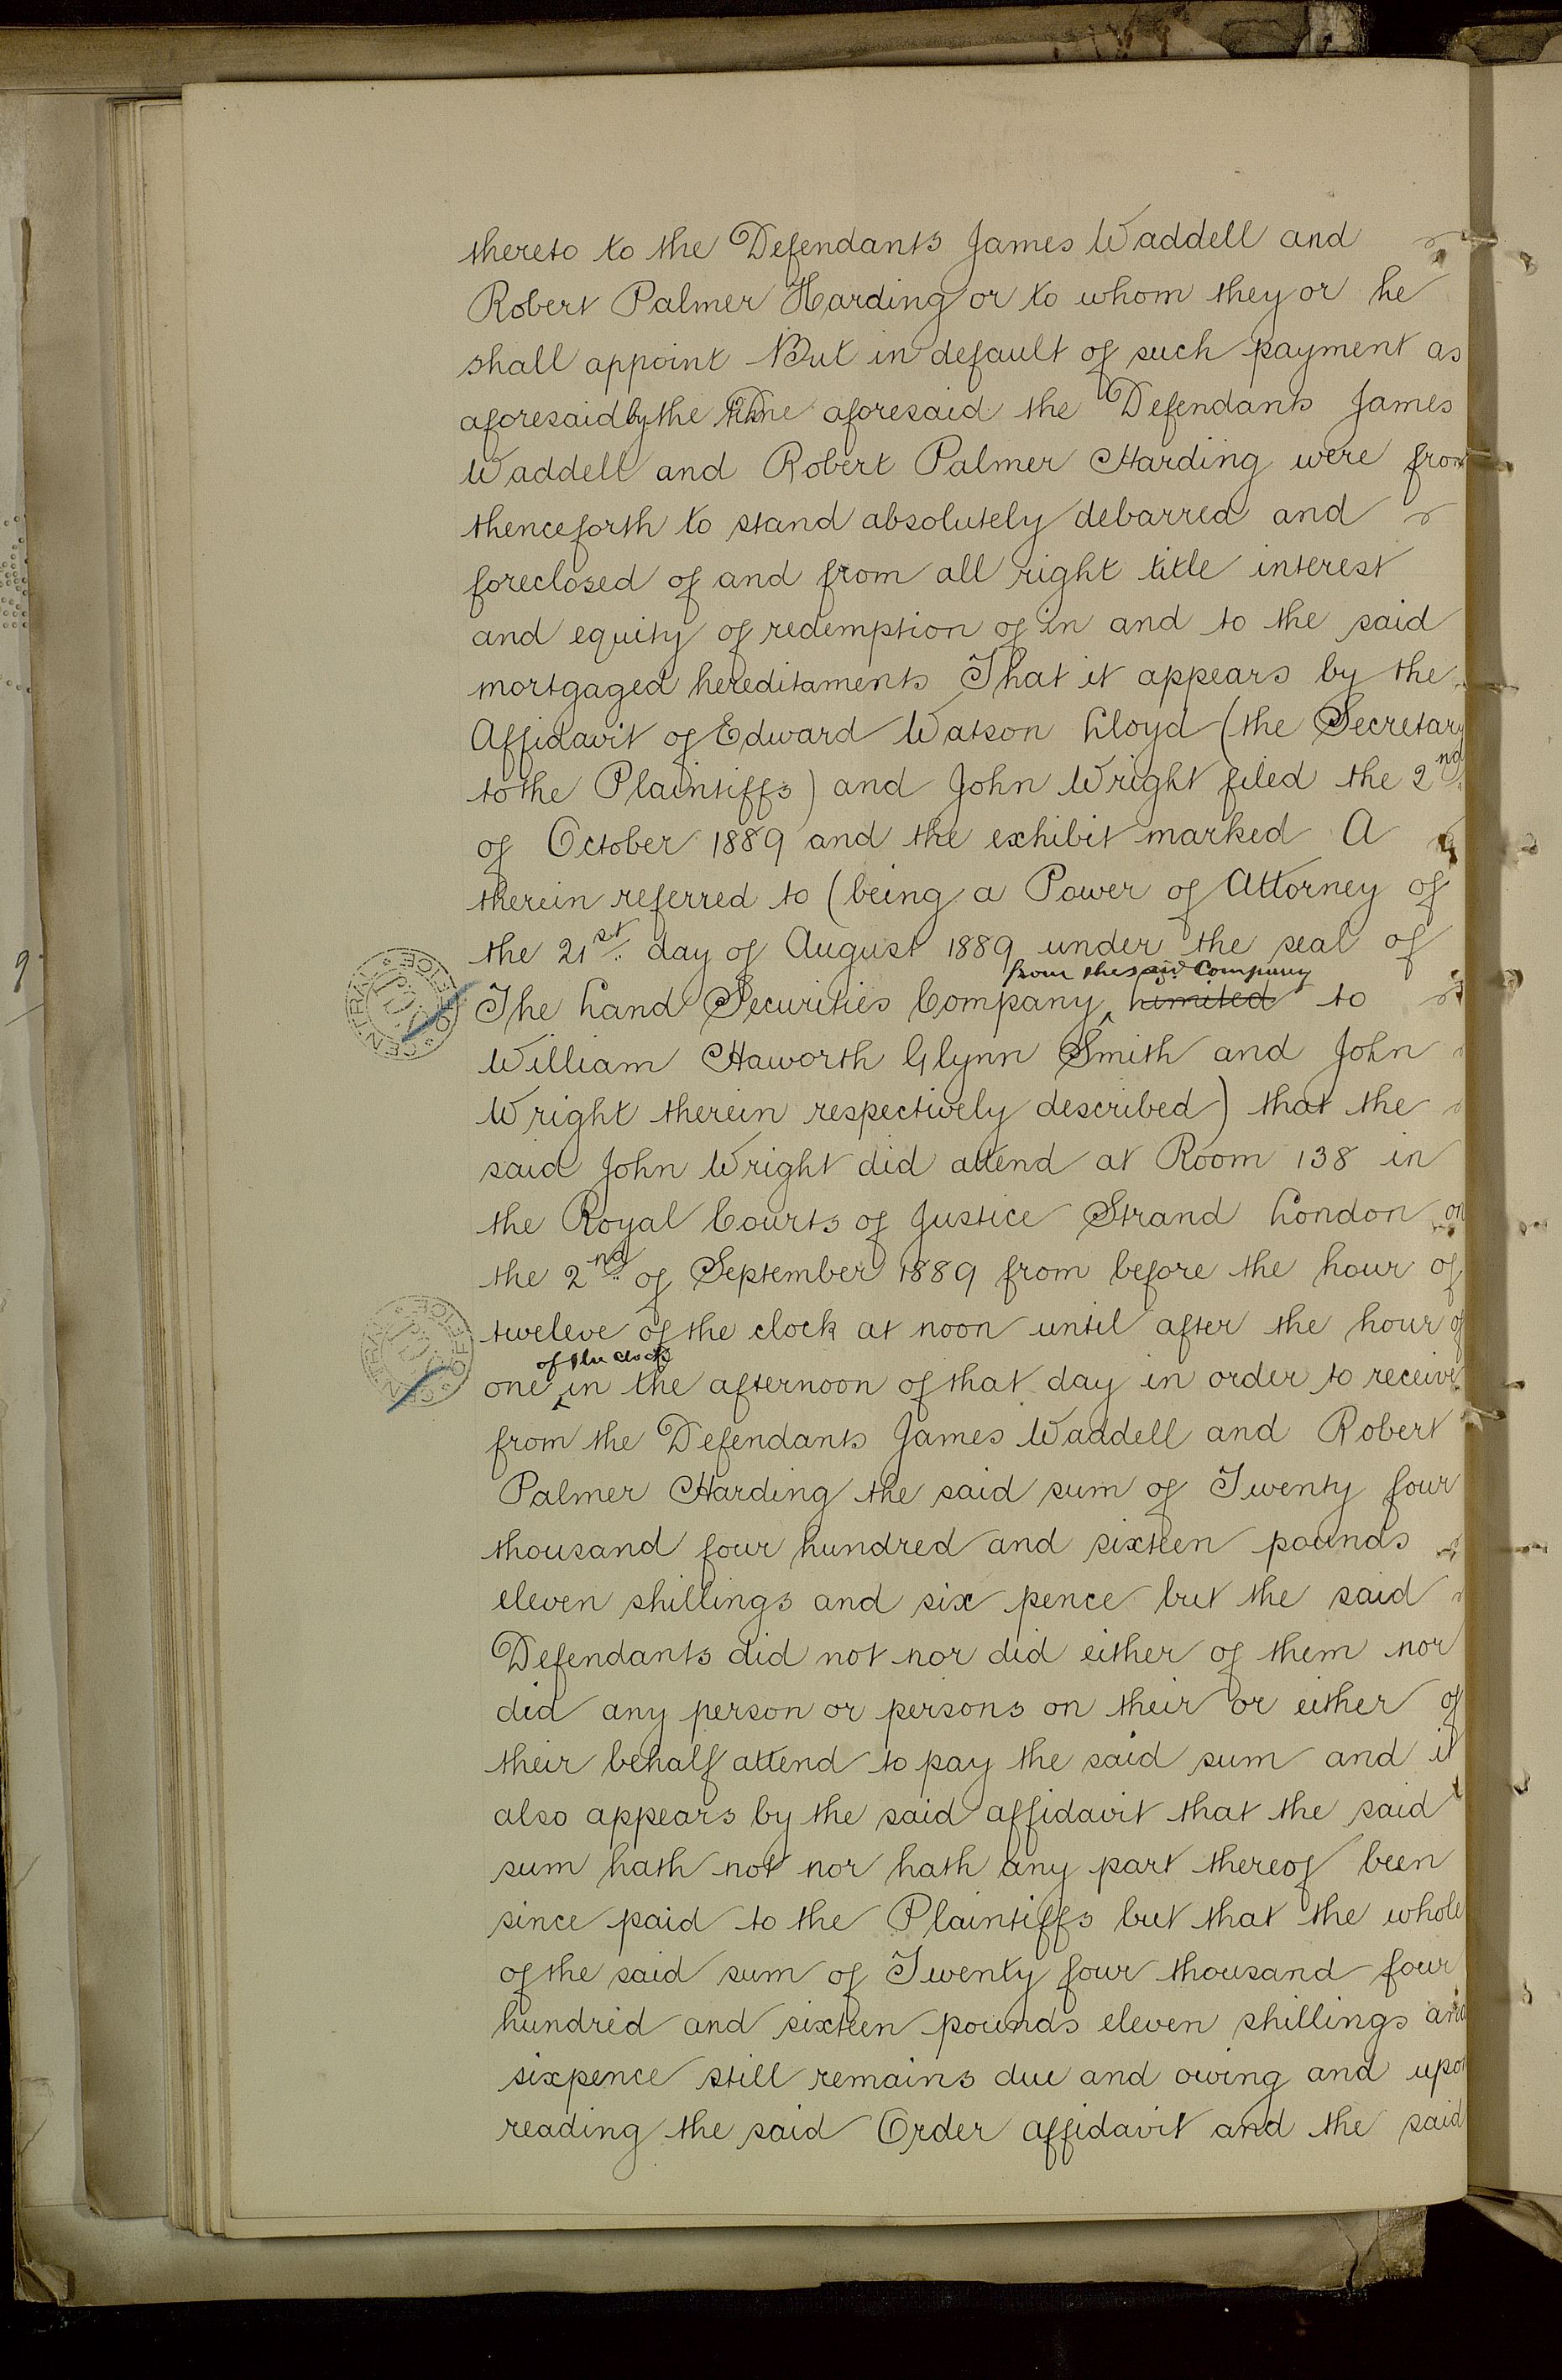 thereto to the Defendants James Waddell and
Robert Palmer Harding or to whom they or he
shall appoint But in default of such payment as
aforesaid by the time aforesaid the Defendants James
Waddell and Robert Palmer Harding were from
thenceforth to stand absolutely debarred and
foreclosed of and from all right title interest
and equity of redemption of in and to the said
mortgaged hereditaments That it appears by the
Affidavit of Edward Watson Lloyd (the Secretary
to the Plaintiffs) and John Wright filed the 2nd
of October 1889 and the exhibit marked A
therein referred to (being a Power of Attorney of
the 21st day of August 1889 under the seal of
from the said Company
The Land Securities Company Limited to
William Haworth Glynn Smith and John
Wright therein respectively described) that the
said John Wright did attend at Room 138 in
the Royal Courts of Justice Strand London on
the 2nd of September 1889 from before the hour of
tweleve of the clock at noon until after the hour of
of the clock
one in the afternoon of that day in order to receive
from the Defendants James Waddell and Robert
Palmer Harding the said sum of Twenty four
thousand four hundred and sixteen pounds
eleven shillings and six pence but the said
Defendants did not nor did either of them nor
did any person or persons on their or either of
their behalf attend to pay the said sum and it
also appears by the said affidavit that the said
sum hath not nor hath any part thereof been
since paid to the Plaintiffs but that the whole
of the said sum of Twenty four thousand four
hundred and sixteen pounds eleven shillings and
sixpence still remains due and owing and upon
reading the said Order affidavit and the said
CENTRAL OFFICE
CENTRAL OFFICE